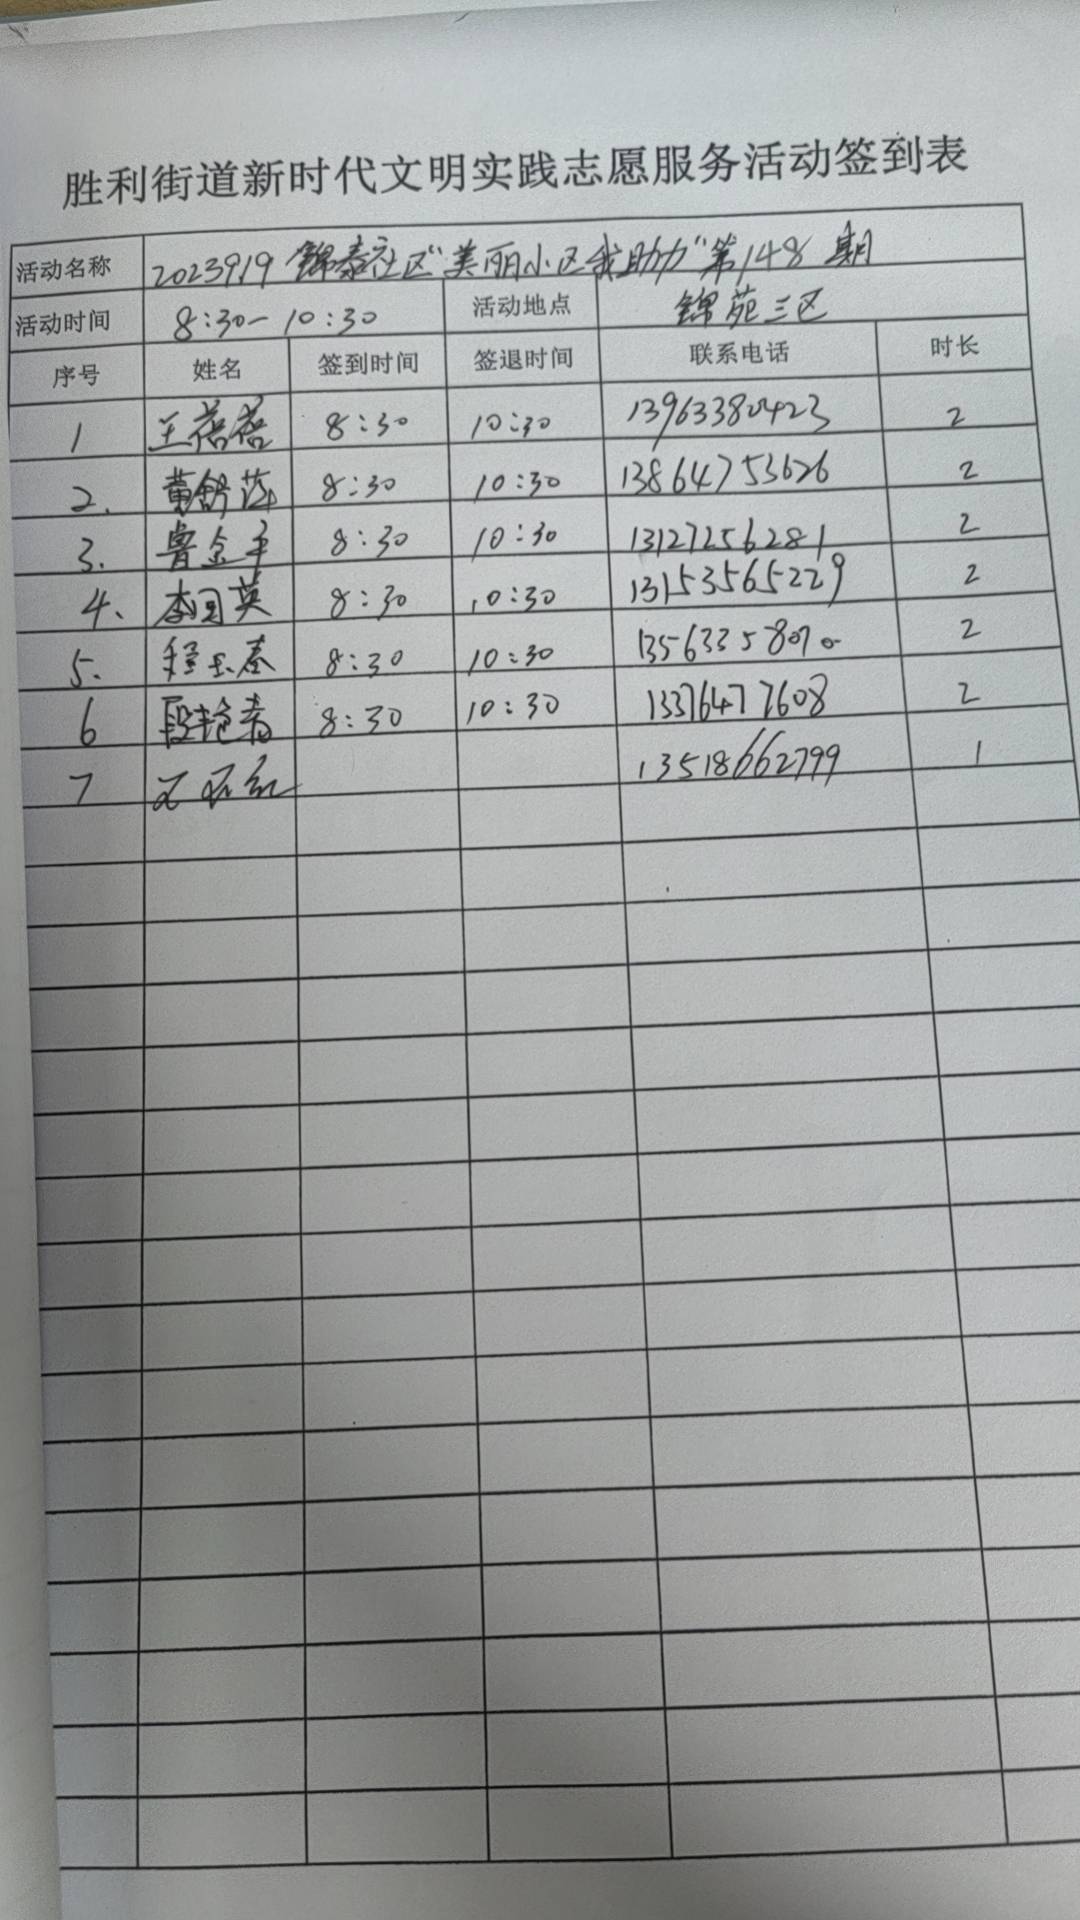 胜利街道新时代文明实践志愿服务活动签到表
活动名称 2023919 锦泰社区“美丽小区我助力”第148期
活动时间 8:30-10:30 活动地点 锦苑三区
序号 姓名 签到时间 签退时间 联系电话 时长
1 王蓓蓓 8:30 10:30 13963380423 2
2. 黄舒萍 8:30 10:30 13864753626 2
3. 鲁金平 8:30 10:30 13127256281 2
4、 李国英 8:30 10:30 13153565229 2
5. 程玉春 8:30 10:30 2
6 段艳春 8:30 10:30 13376477608 2
7 13518662799 1